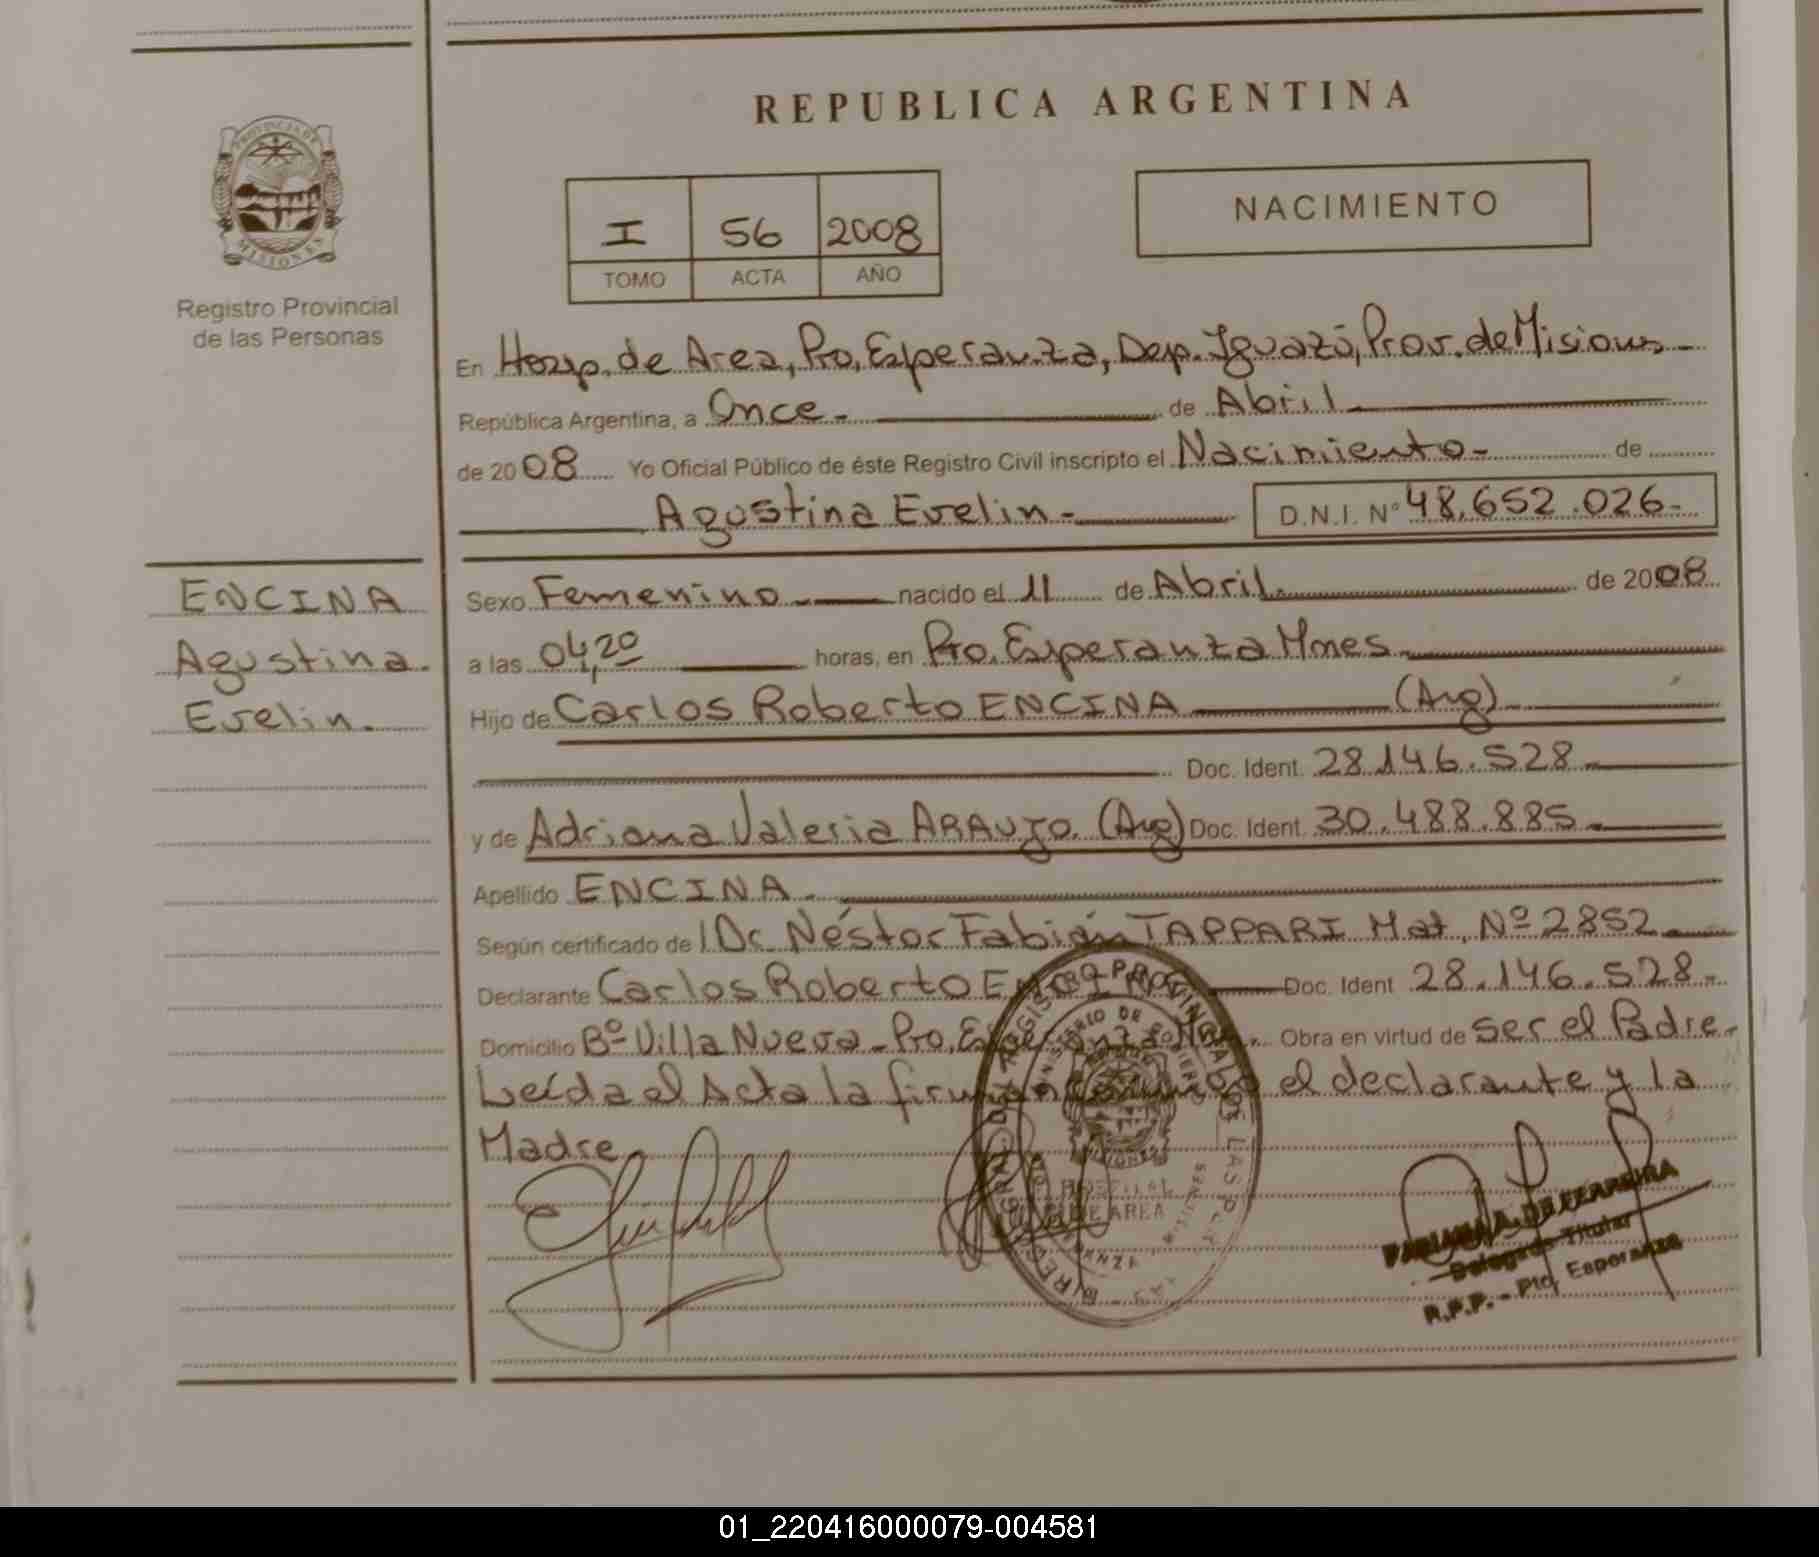 REPUBLICA ARGENTINA
PROVINCIA DE
MISIONES
Registro Provincial
de las Personas
I 56 2008
TOMO ACTA AÑO
NACIMIENTO
En Hosp. de Area, Pto, Esperanza, Dep. Iguazú, Prov. de Misiones
República Argentina, a Once.- de Abril
de 2008 Yo Oficial Público de éste Registro Civil inscripto el Nacimiento- de
Agustina Evelin.- D.N.I. N° 48.652.026-
ENCINA
Agustina.
Evelin.
Sexo Femenino.- nacido el 11 de Abril de 2008
a las 04,20 horas, en Pto. Esperanza Mnes.
Hijo de Carlos Roberto ENCINA (Arg)
Doc. Ident. 28.146.528
y de Adriana Valeria ARAUJO. (Arg) Doc. Ident. 30.488.885.
Apellido ENCINA.
Según certificado de Dr. Néstor Fabián TAPPARI Mat. Nº 2852
Declarante Carlos Roberto ENCINA Doc. Ident 28.146.528.-
Domicilio Bº Villa Nueva - Pto. Esperanza Mnes. Obra en virtud de ser el Padre.-
Leída el Acta la firman conmigo el declarante y la
Madre
HOSPITAL
DE AREA
DE FERREIRA
Delegada Titular
R.P.P. - Pto. Esperanza
01_220416000079-004581